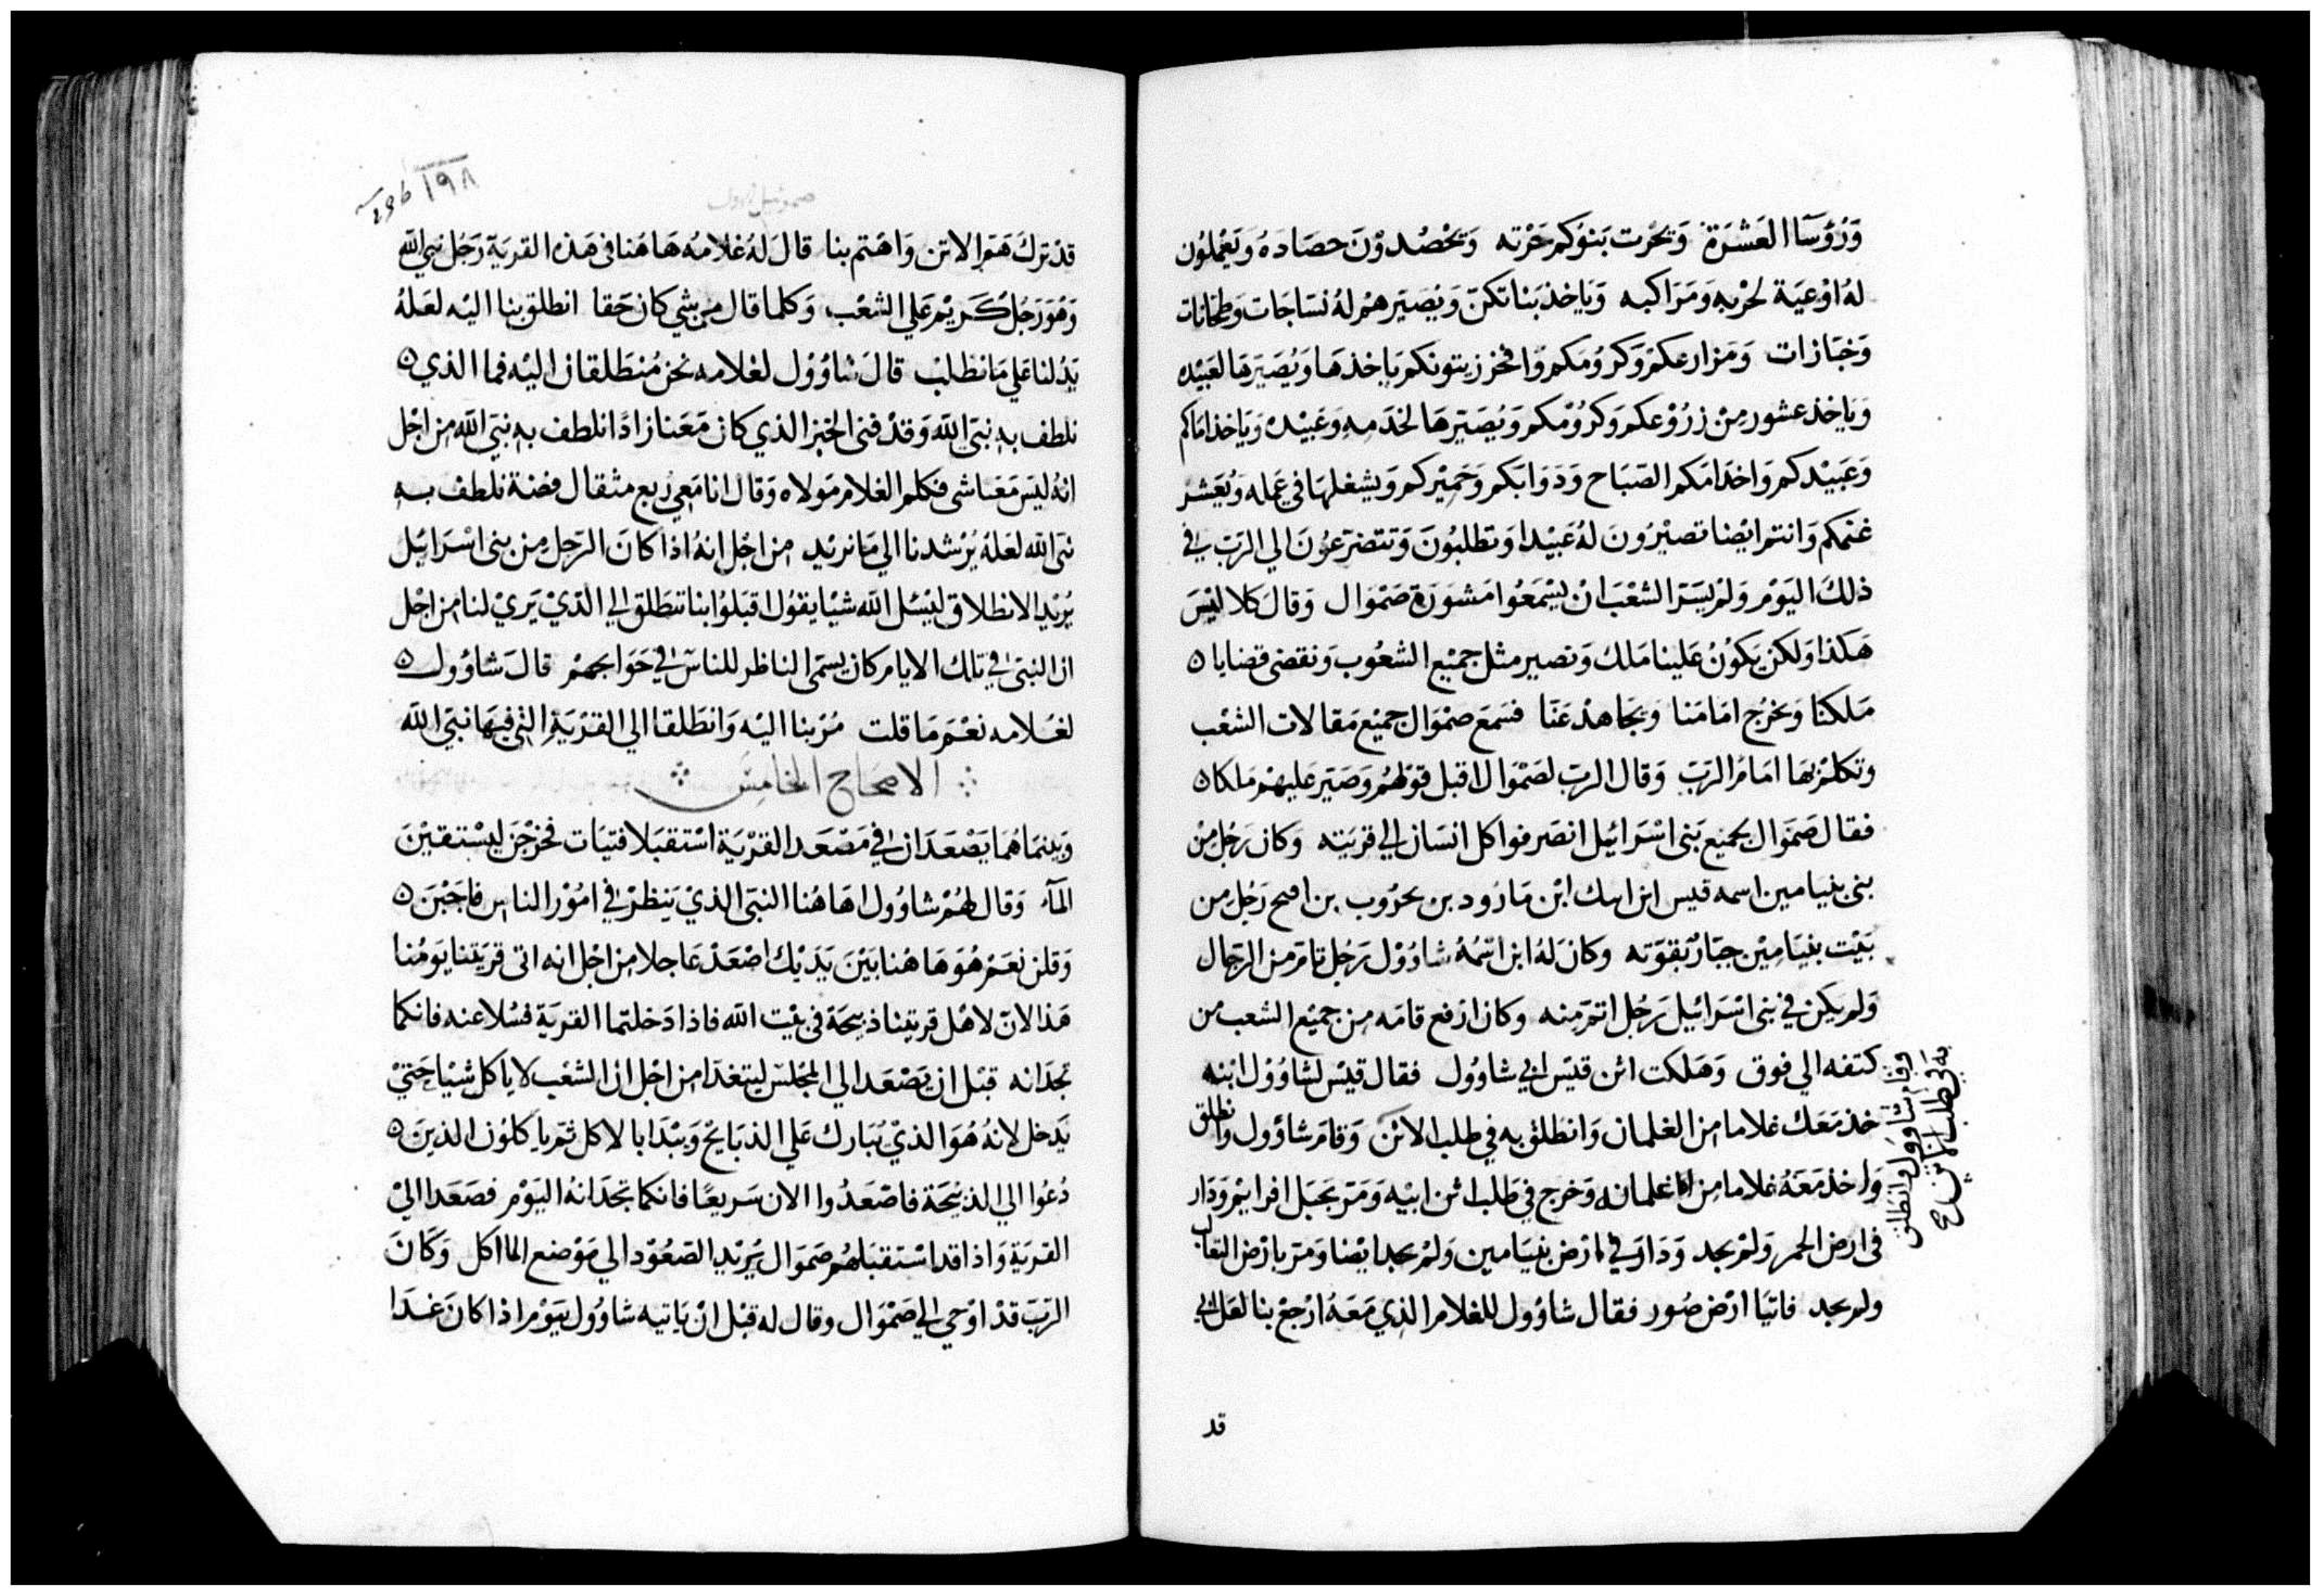 وَرُؤسَآ العَشرَة وَتحْرث بَنوكم حَرْثه وَتحْصُدوْنَ حصَادهُ وَيَعْملوُن
لهُ اوْعيَة لحْربهِ وَمَرَاكبه وَيَاخذ بَناتكنّ وَيُصَيّر هنْ لهُ نسَاجَات وَطحَانات
وَخبَازات وَمَزارعكمْ وَكرُومَكم وَافخر زيتونكم يَاخذهَا وَيُصَيّرهَا لعَبيْده
وَيَاخذ عشور مِنْ زرُوْعكم وَكرُوْمكم وَيُصَيّرهَا لخدَمهِ وَعَبيْده وَيَاخذ امَاكم
وَعَبيْدكم وَاخدَامَكم الصَبَاح وَدَوَابكم وَحَميْركم وَيشغلهَا في عَمله وَيُعَشر
غنمكم وَانتم ايْضا تصيْرُونَ لهُ عَبيْدا وَتطلبُونَ وَتتضرّعوُنَ الي الرَبّ في
ذلكَ اليَوْم وَلمْ يَسَرّ الشعْبَ انْ يسْمَعُوا مَشوَرَة صَمْوَال وَقالَ كلا ليْسَ
هَكذا وَلكن يَكوُنُ عَلينا مَلك وَنصير مثل جميْع الشعُوب وَنقضى قضايا ه
مَلكنا وَيخرُج امَامَنا وَيجَاهدْ عَنّا فسَمعَ صمْوَال جميْع مَقالات الشعْب
وتكلم بهَا امَامُ الرَبّ وَقال الرَبّ لصَمْوَال اقبل قوْلهمْ وَصَيّر عَليهمْ مَلكا ه
فقال صَموَال لجميْع بَنى اسْرَائيْل انصَرفوا كل انسَان الي قريَته وَكان رَجُل مِنْ
بنى بنيامين اسمه قيس ابن ابيك ابْن مَارُود بن بحْرُوب بن افيح رَجُل من
بَيْت بنيَامِيْن جبّارٌ بقوّته وكانَ لهُ ابن اسْمُهُ شاؤوْل رَجُل تامّ من الرّجَال
وَلم يَكن في بنى اسْرَائيْل رَجُل اتمّ مِنه وكان ارْفع قامَه مِن جميْع الشعب مْن
كتفه الي فوق وَهَلكت اتن قيْس ابي شاوُول فقال قيْس لشاؤوْل ابْنه
خذ مَعَك غلاما من الغلمان وَانطلق به في طلب الاتن وَقامَ شاؤول وانطلق
وَاخذ مَعَهُ غلاما مِن غلمانه وَخرج في طلب اتن ابيْه وَمَرّ بجَبَل افرائيْم وَدَار
فى ارض الجمر وَلمْ يجد وَدَارَ في ارْض بنيَامين وَلمْ يجد ايْضا وَمَرّ بارْض الثعالب
ولم يجد فاتيَا ارْض صُور فقال شاؤول للغلام الذِي مَعَهُ ارْجعْ بنا لعَل ابي
وقام شاوول وانطلق
به في طلب الاتن صح
قد
١٩٨
صموئيل الاول
قدْ ترَكَ هَمّ الاتن وَاهتم بنا قالَ لهُ غلامُه هَاهُنا فى هَذه القريَة رَجُل نبي اللّه
وَهُوَ رَجُل كَريْم عَلي الشعْب وَكلما قال من شي كان حَقا انطلق بنا اليْه لعَلهُ
يَدُلنا عَلي مَا نطلبْ قالَ شاؤُوْل لغلامه نحنُ مُنطَلقان اليْه فما الذي ه
نلطف به نبيّ اللّه وَقدْ فنى الخبز الذي كان مَعَنا زادًا نلطف به نبيّ اللّه من اجْل
انهُ ليَس مَعَنا شى فكلم الغلام مَولاه وَقال انا مَعِي رُبع مثقال فضة نلطف به
نبيّ اللّه لعَلهُ يُرْشدنا الي مَا نريْد من اجْل انهُ اذا كانَ الرّجل مِن بنى اسْرَائيْل
يُريْد الانطلاق ليْسئل اللّه شيْا يقوُل اقبَلوُا بنا ننطَلق الي الذيْ يَريْ لنا من اجْل
ان النبيّ في تلك الايام كان يسمَى الناظر للناسْ في حَوَايجهمْ قالَ شاؤول ه
لغلامه نعْمَ مَا قلت مُرْ بنا اليْه وَانطَلقا الي القرْيَة التى فيهَا نبيّ اللّه
الاصحاح الخامس
وَبينمَا هُمَا يَصْعَدَان في مَصْعَد القرْيَة اسْتقبَلا فتيَات خرَجْنَ ليسْتقيْنَ
المآء وَقال لهُمْ شاؤُول اهَاهُنا النبيّ الذيْ يَنظرْ في امُوْر الناس فاجَبْنَ ه
وَقلن نعَمْ هُوَ هَا هُنا بَيْنَ يَدَيْك اصْعَدْ عَاجلا من اجْل انه اتى قريَتنا يَوْمُنا
هَذا لانّ لاهْل قريتنا ذبيحَة فى بيْت اللّه فاذا دَخلتما القريَة فسْلا عنه فانكما
تجدَانه قبْل ان يَصْعَد الي المجْلسْ ليتغدّا من اجْل ان الشعْب لا ياكل شيْا حَتيْ
يَدخل لانهُ هُوَ الذيْ يُبَارك عَلي الذبَايح وَيبْدَا بالاكل ثمّ ياكلوُن الذينَ ه
دُعُوا الي الذبيْحَة فاصْعَدُوا الان سَريعًا فانكما تجدَانهُ اليَوْم فصَعَدا اليْ
القريَة وَاذا قد اسْتقبَلهُم صَموَال يُريْد الصّعُوْد الي مَوْضع الماكل وَكانَ
الرَبّ قدْ اوْحي الي صَمْوَال وقال له قبْل انْ يَاتيه شاؤول بيَوْم اذا كانَ غدَا